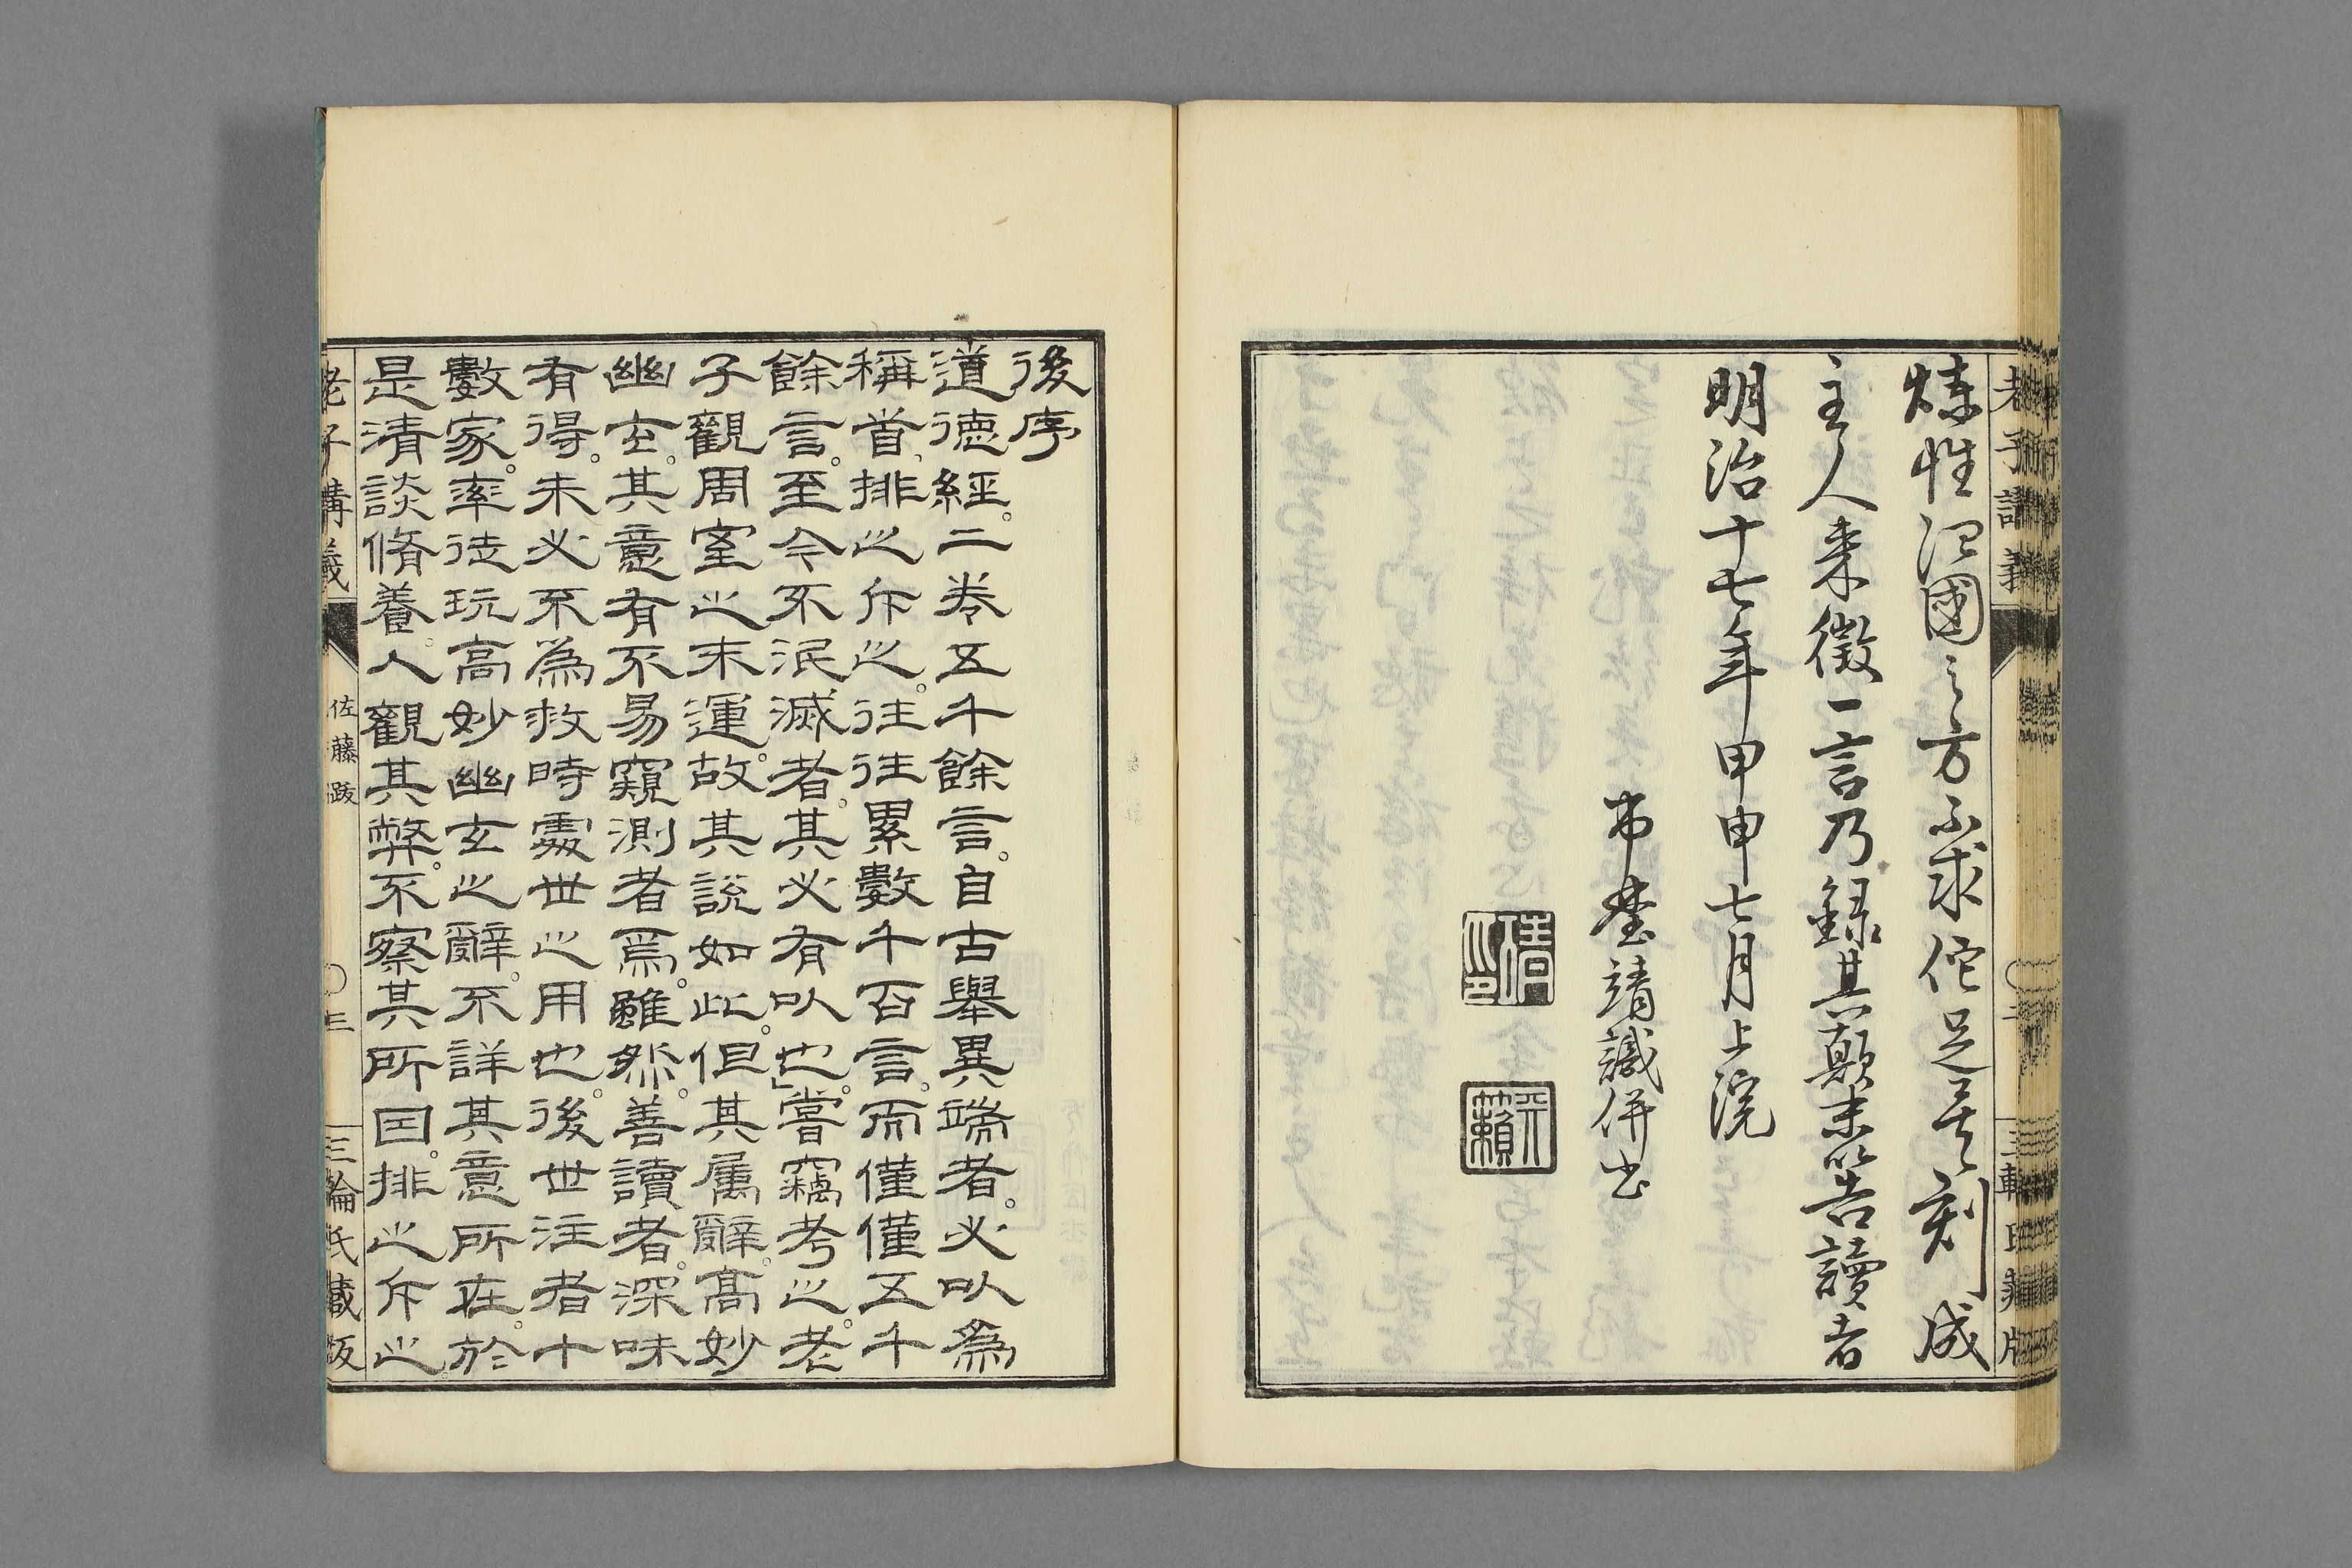 老子講義
煉性治國之方不求佗足矣刻成
主人来徴一言乃録其顛末以告讀者
明治十七年甲申七月上浣
靖識併書
後序
道徳經。二卷五千餘言。自古舉異端者。必以為
稱首、排之斥之。往往累數千百言。而僅僅五千
餘言。至今不泯滅者。其必有以也。」嘗竊考之。老
子觀周室之末運。故其說如此。但其属辭。高妙
幽玄。其意有不易窺測者焉。雖然。善讀者。深味
有得。未必不為救時處世之用也。後世注者十
數家。率徒玩高妙幽玄之辭。不詳其意所在。於
是清談脩養。人觀其弊。不察其所因。排之斥之
老子講義
佐藤跋
〇三
三輪氏藏版